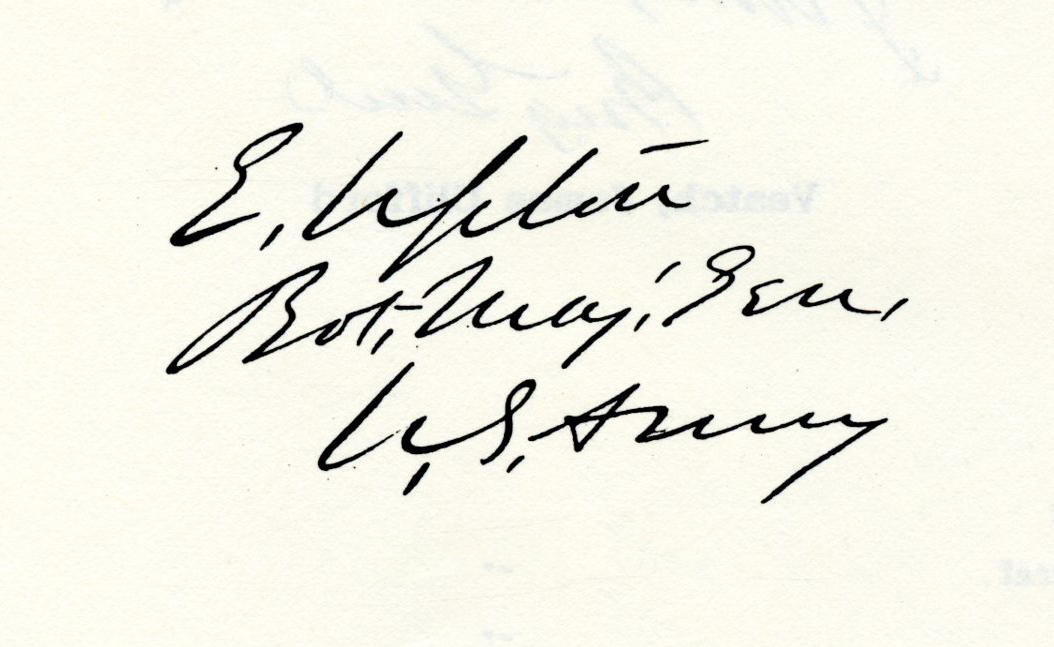 E. Upton
Bvt. Maj. Gen.
U.S. Army